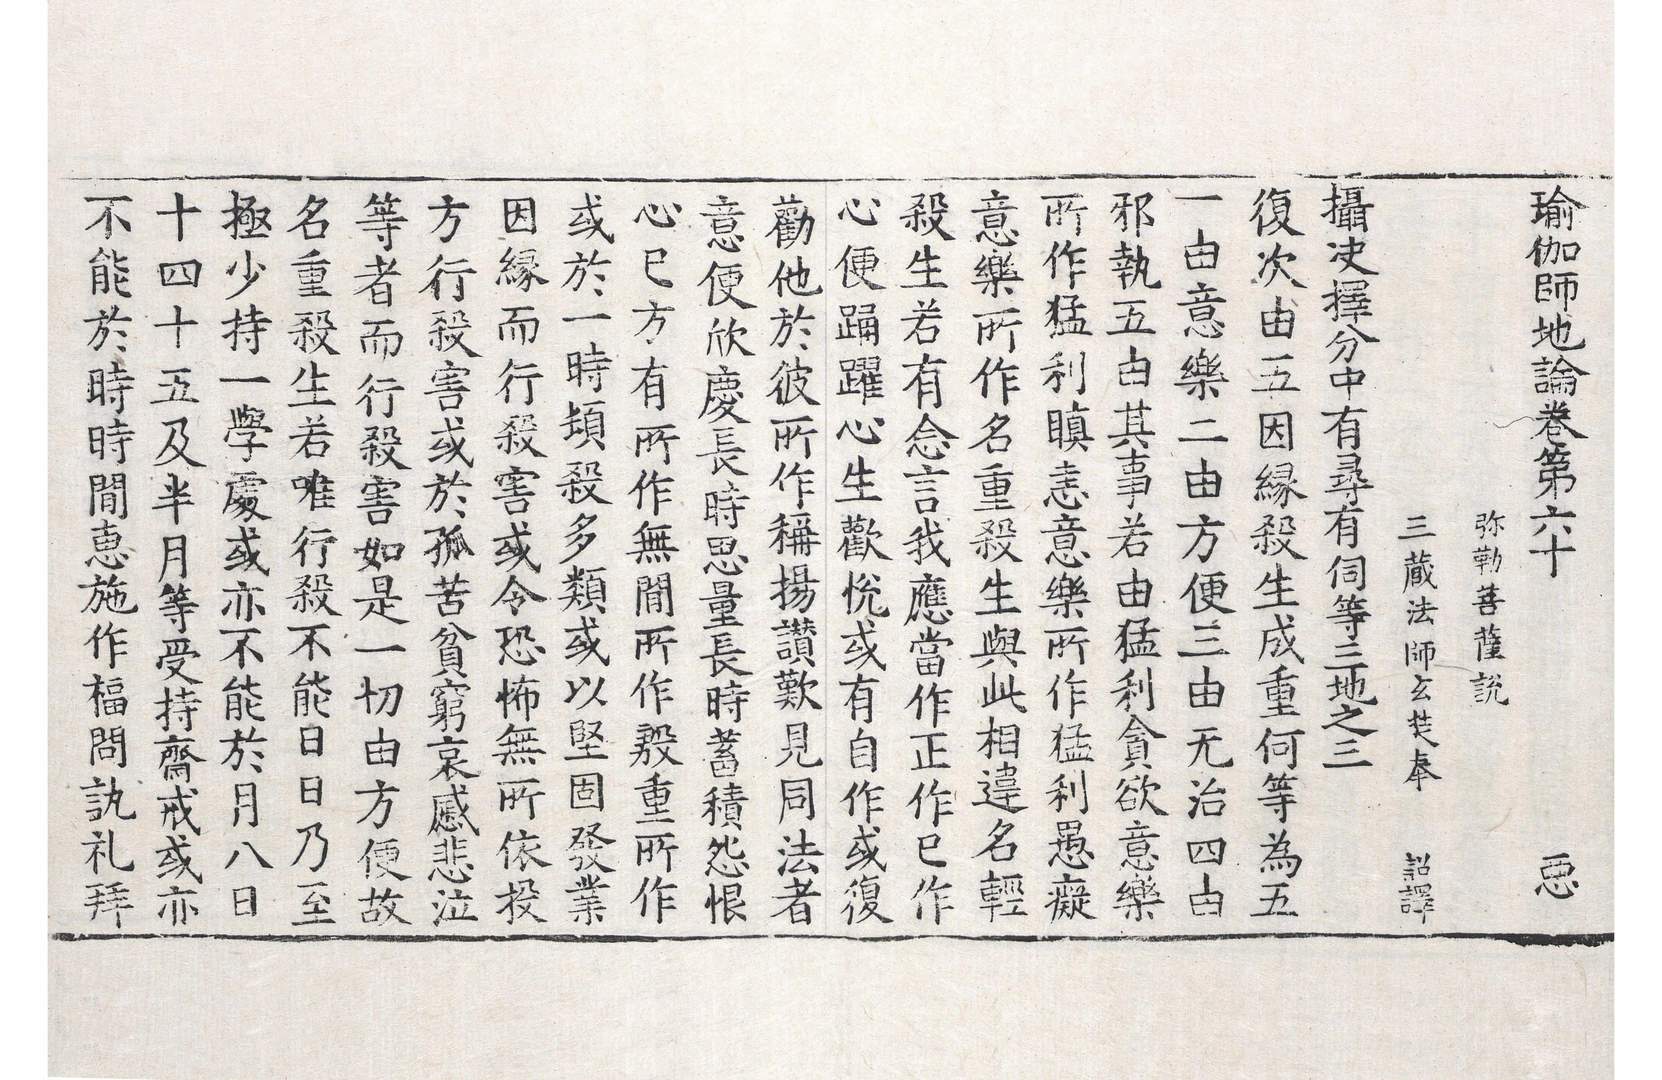 瑜伽師地論卷第六十 惡
弥勒菩薩說
三藏法師玄奘奉 詔譯
攝决擇分中有尋有伺等三地之三
復次由五因緣殺生成重何等為五
一由意樂二由方便三由无治四由
邪執五由其事若由猛利貪欲意樂
所作猛利瞋恚意樂所作猛利愚癡
意樂所作名重殺生與此相違名輕
殺生若有念言我應當作正作已作
心便踊躍心生歡悅或有自作或復
勸他於彼所作稱揚讃歎見同法者
意便欣慶長時思量長時蓄積怨恨
心已方有所作無間所作殷重所作
或於一時頓殺多類或以堅固發業
因緣而行殺害或令恐怖無所依投
方行殺害或於孤苦貧窮哀慼悲泣
等者而行殺害如是一切由方便故
名重殺生若唯行殺不能日日乃至
極少持一學處或亦不能於月八日
十四十五及半月等受持齋戒或亦
不能於時時間惠施作福問訊礼拜